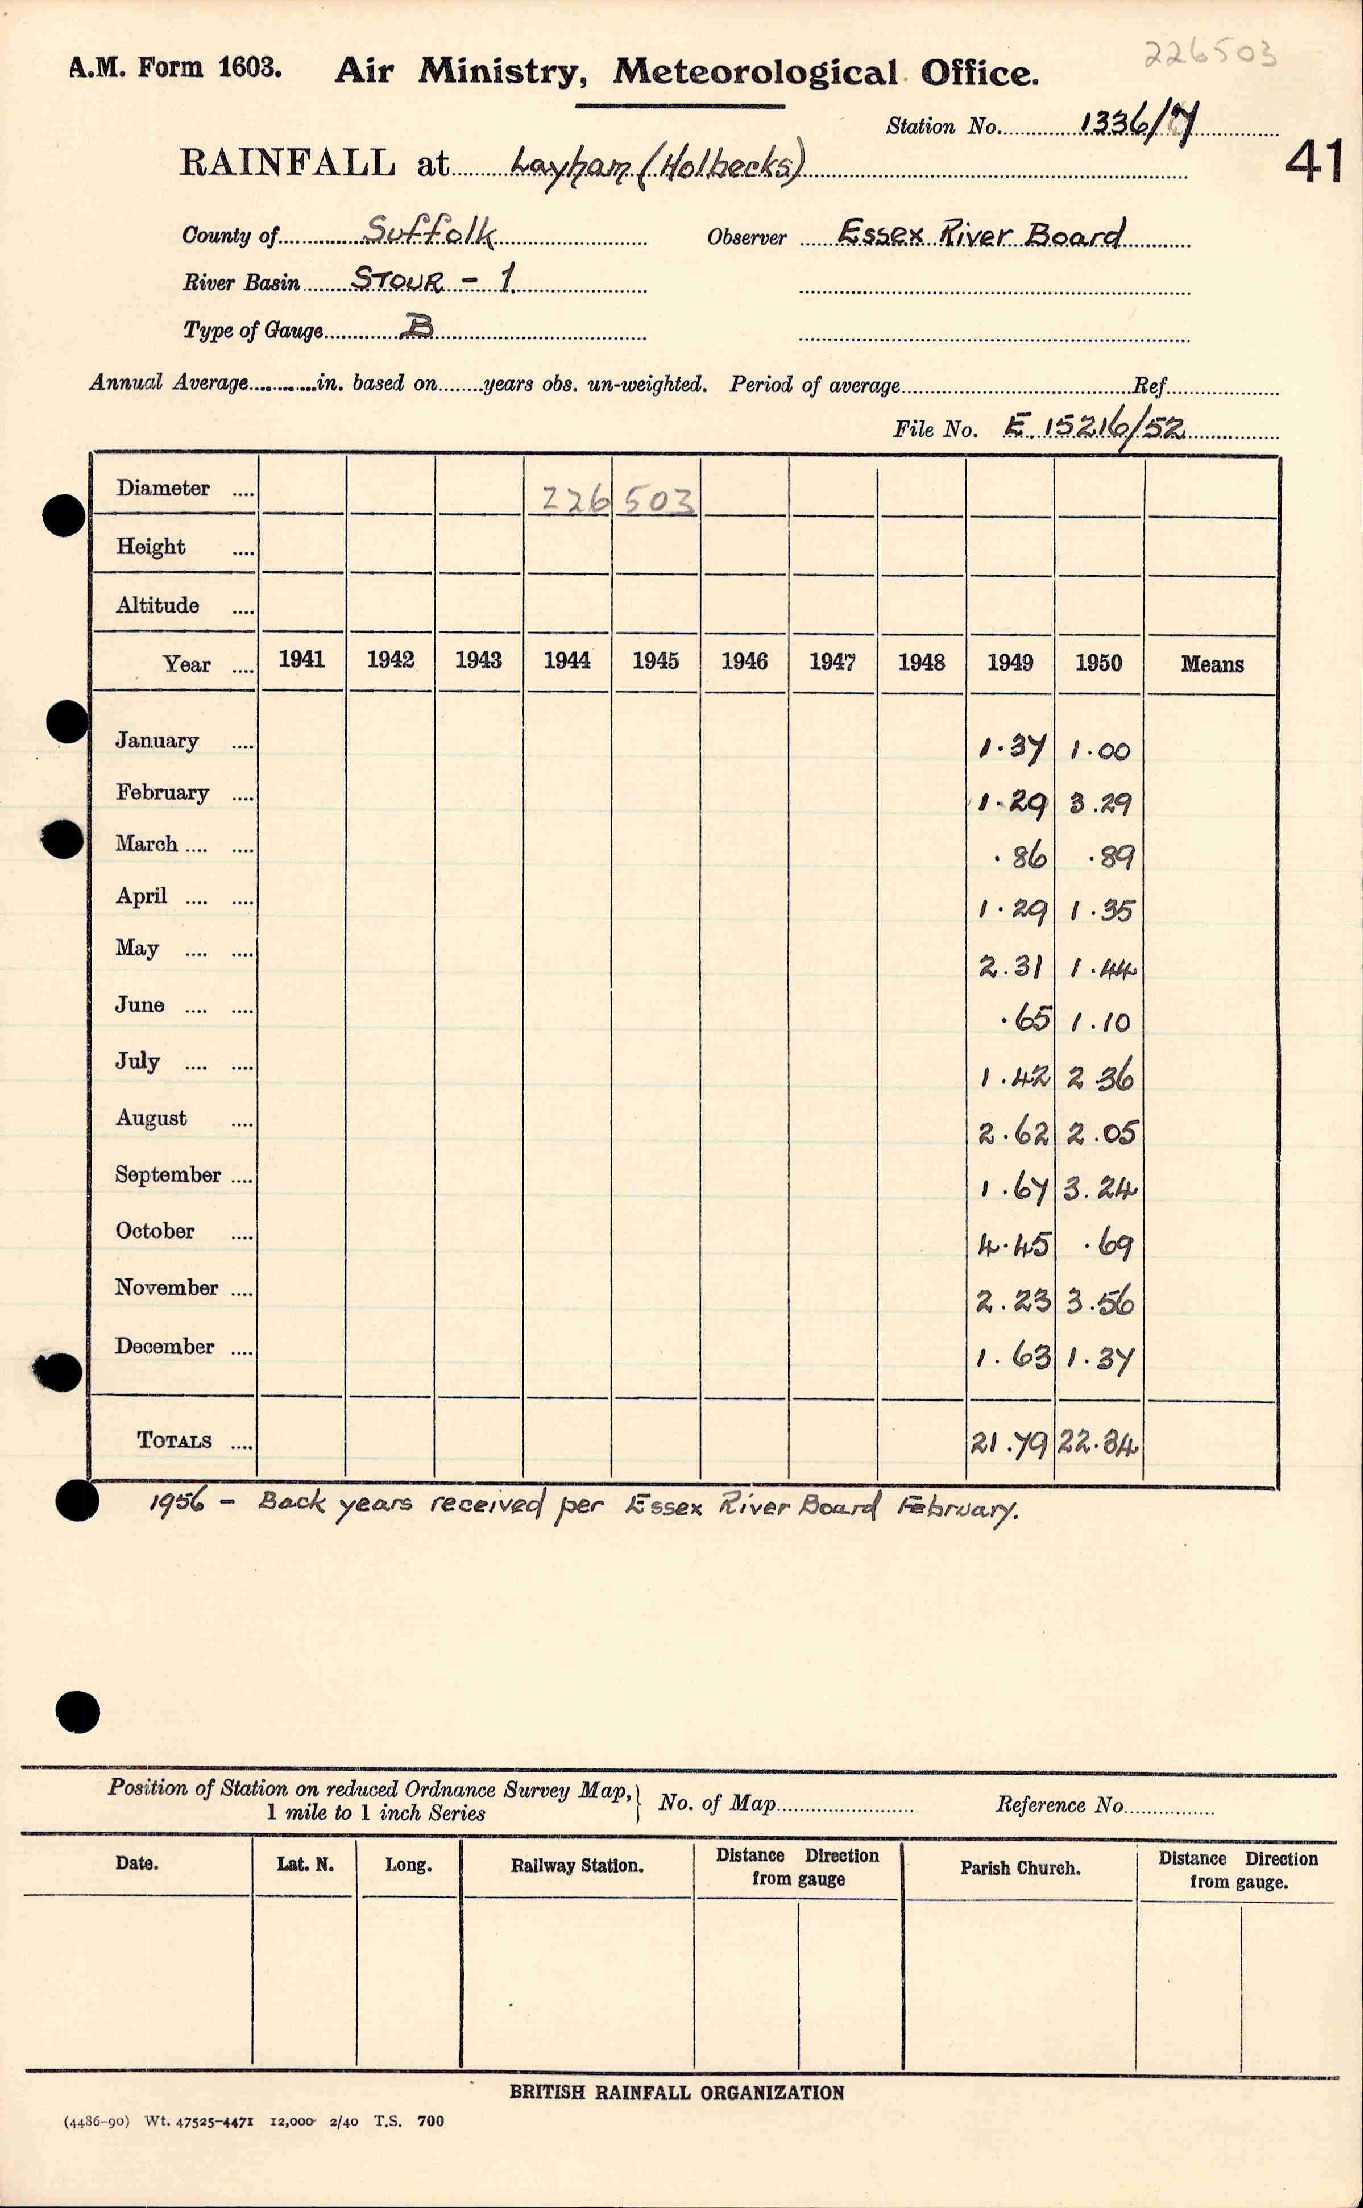 226503
A.M. Form 1603. Air Ministry, Meteorological Office.
Station No. 1336/7
RAINFALL at Layham (Holbecks)
41
County of Suffolk Observer Essex River Board
River Basin STOUR - 1
Type of Gauge B
Annual Average in. based on years obs. un-weighted. Period of average Ref
File No. E 15216/52
Diameter .... 226 503
Height ....
Altitude ....
Year .... 1941 1942 1943 1944 1945 1946 1947 1948 1949 1950 Means
January .... 1.37 1.00
February .... 1.29 3.29
March .... .... .86 .89
April .... .... 1.29 1.35
May .... .... 2.31 1.44
June .... .... .65 1.10
July .... .... 1.42 2 36
August .... 2.62 2.05
September .... 1.67 3.24
October .... 4.45 .69
November .... 2.23 3.56
December .... 1.63 1.37
TOTALS .... 21.79 22.34
1956 - Back years received per Essex River Board February.
Position of Station on reduced Ordnance Survey Map, No. of Map Reference No.
1 mile to 1 inch Series
Date. Lat. N. Long. Railway Station. Distance Direction from gauge Parish Church. Distance Direction from gauge.
BRITISH RAINFALL ORGANIZATION
(4486-90) Wt. 47525-4471 12,000 2/40 T.S. 700